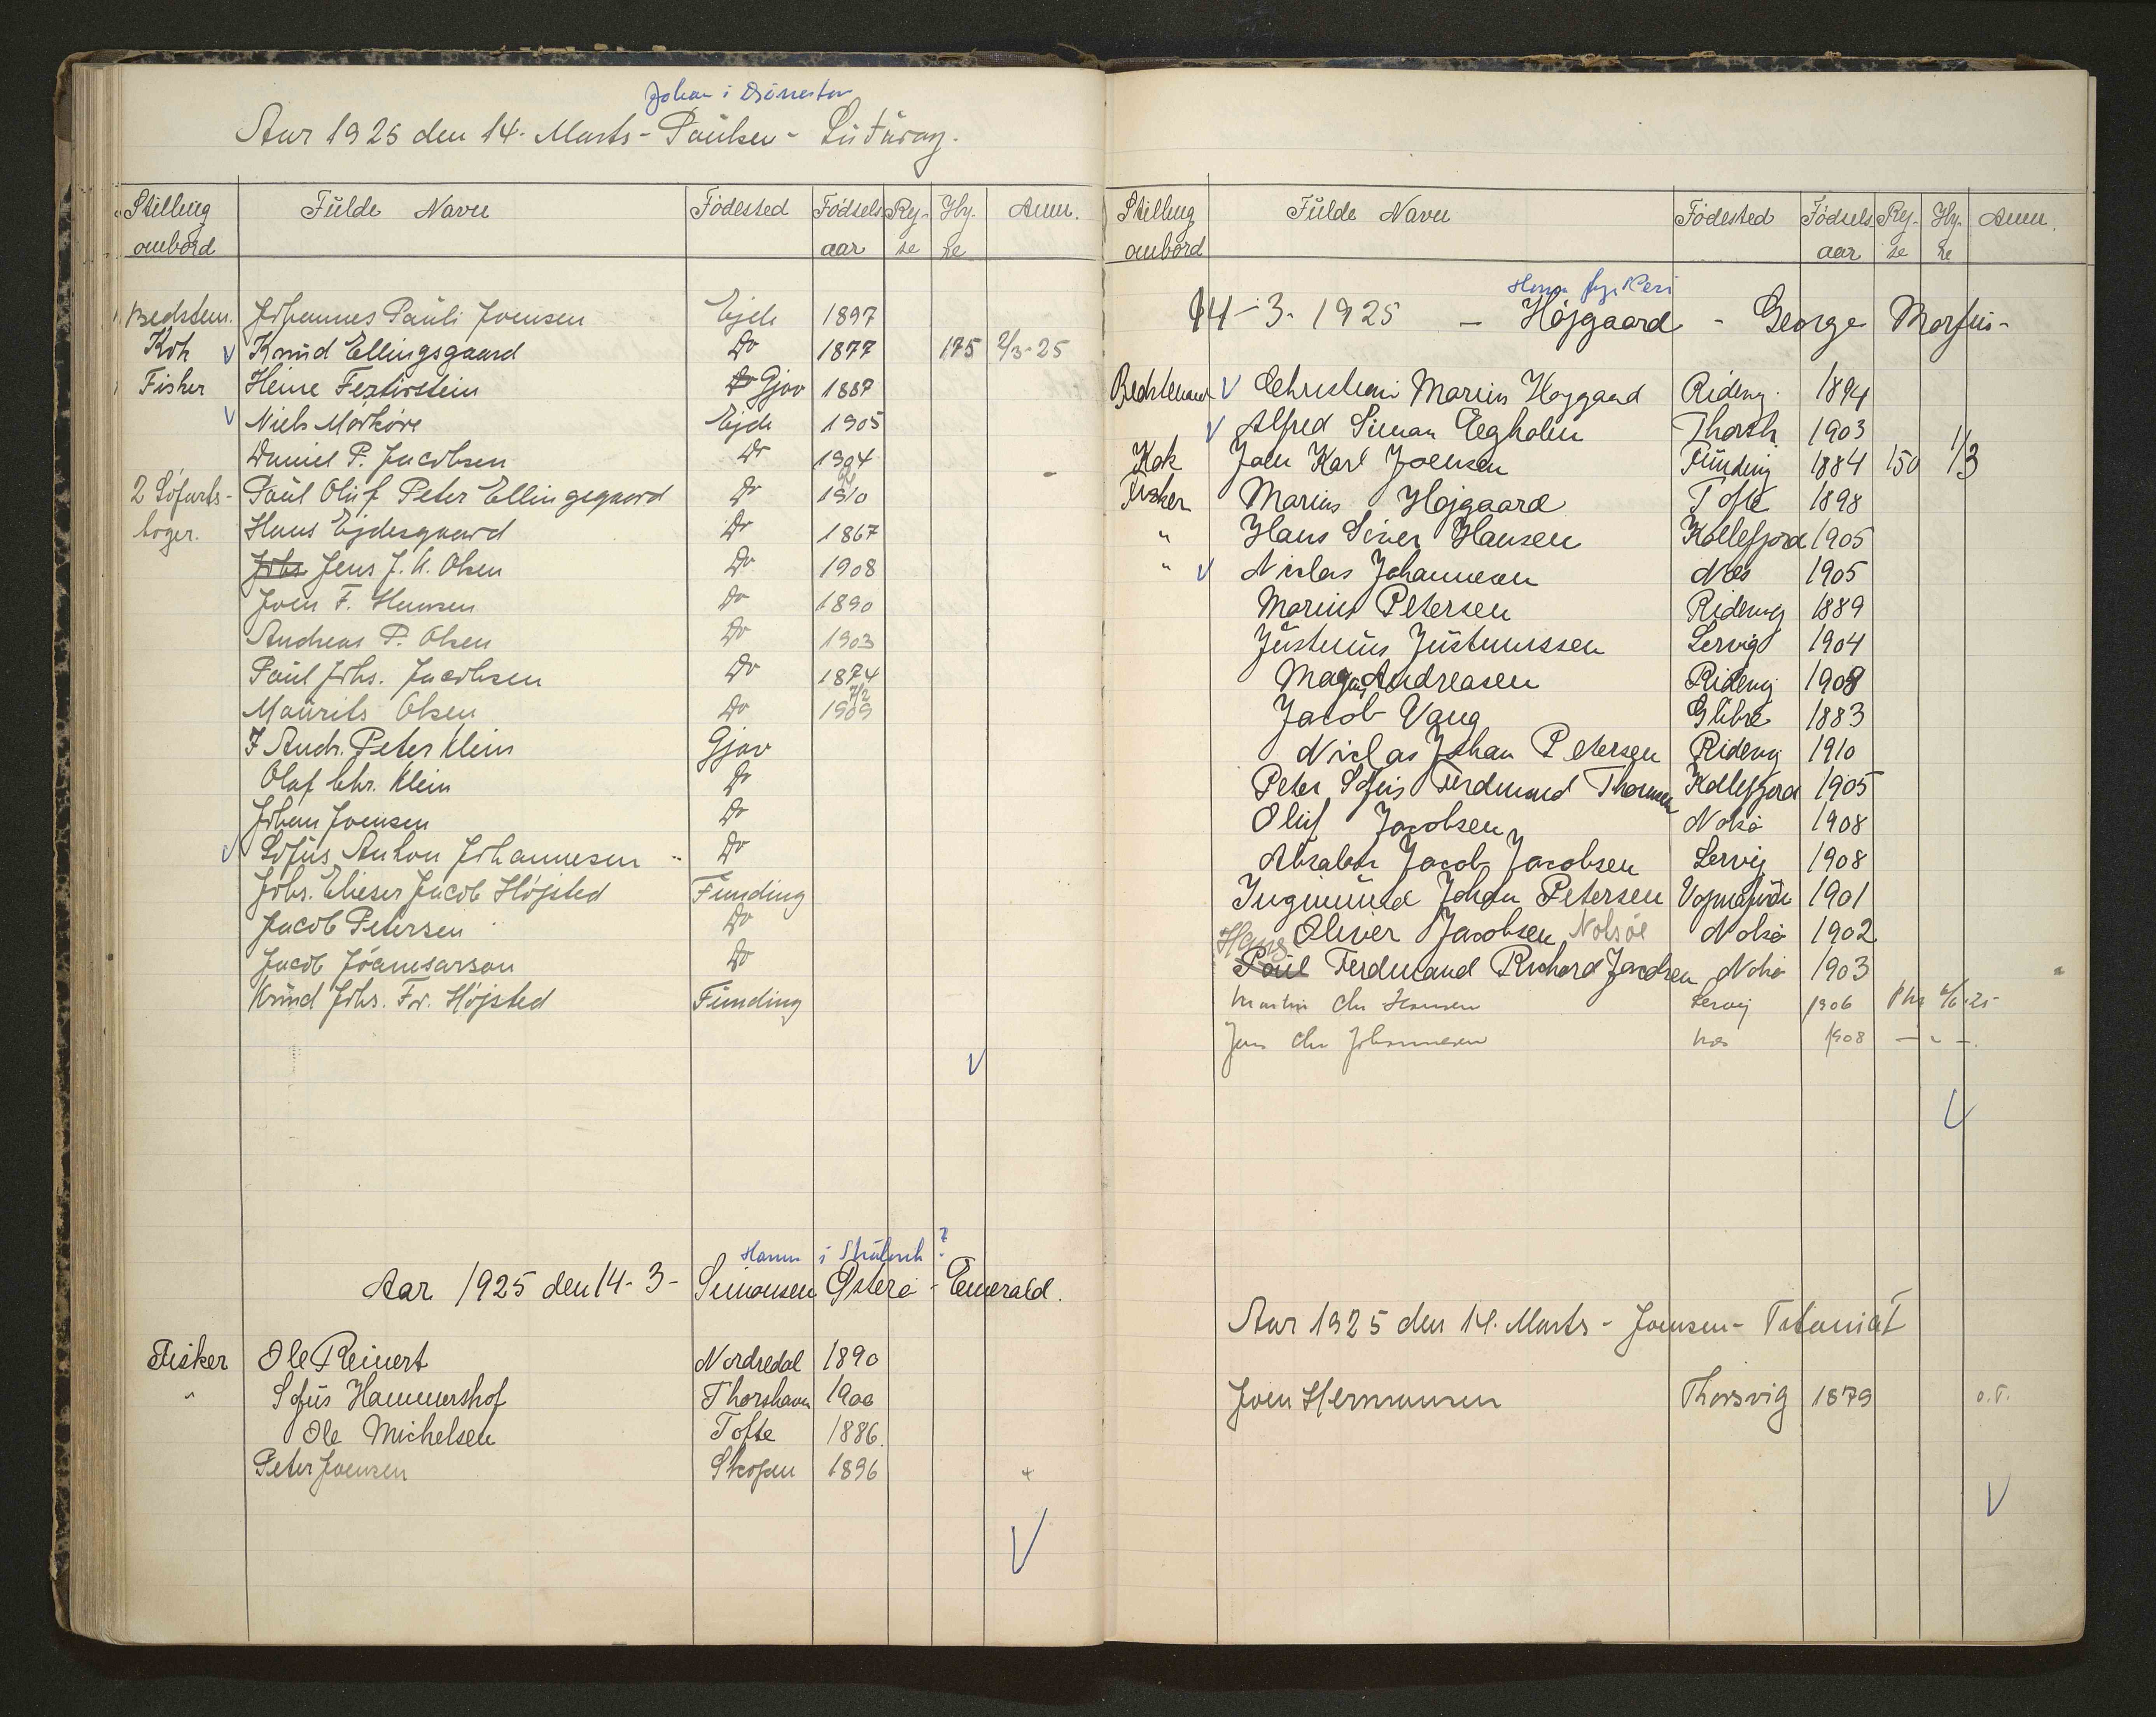 Johan i
Aar 1925 den 14. Marts - Poulsen - Sudurøy.
Stilling ombord Fulde Navn Fødested Fødselsaar Hy-re Anm.
Bedstem. Johannes Pauli Joensen Ejde 1897
Kok V Knud Ellingsgaard Do 1877 175 2/3-25
Fisker Heine Festirstein Do Gjov 1887
V Niels Mörköre Ejde 1905
Daniel P. Jacobsen Do 1904
2 Söfarts- Paul Oluf Peter Ellingsgaard Do 1910
böger. Hans Ejdesgaard Do 1867
Johs Jens J. A. Olsen Do 1908
Joen F. Hansen Do 1890
Andreas P. Olsen Do 1903
Paul Johs. Jacobsen Do 1874
Maurits Olsen Do 1909
J Andr. Peter Klein Gjov
Olaf Chr. Klein Do
Johan Joensen Do
V Sofus Anton Johannesen Do
Johs. Elieser Jacob Höjsted Funding
Jacob Petersen Do
Jacob Jóannesarson Do
Knud Johs. Fr. Höjsted Funding
V
Hanus i ?
Aar 1925 den 14-3- Simonsen Østerø - Emerald.
Fisker Ole Reinert Nordredal 1890
" Sofus Hammershof Thorshavn 1900
Ole Michelsen Tofte 1886.
Peter Joensen Skopen 1896
V
Stilling ombord Fulde Navn Fødested Fødselsaar Hy-re Anm.
14-3-1925 - Höjgaard - George Morfus-
Bedstemand V Christian Marius Hojgaard Ridevig 1894
V Alfred Simun Eegholm Thorsh 1903
Kok Joen Karl Joensen Funding 1884 150 1/3
Fisker Marius Hojgaard Tofte 1898
" Hans Siver Hansen Kollefjord 1905
" V Niclas Johannesen Næs 1905
Marius Petersen Ridevig 1889
Justinus Justinussen Lervig 1904
Magnus Andreasen Ridevig 1908
Jacob Vang Glibre 1883
Niclas Johan Petersen Ridevig 1910
Peter Sofus Ferdinand Thomsen Kollefjord 1905
Oluf Jacobsen Nolsö 1908
Absalon Jacob Jacobsen Lervig 1908
Ingimund Johan Petersen 1901
Oliver Jacobsen Nolsöe Nolsö 1902
Hans Paul Ferdinand Richard Jacobsen Nolsö 1903
Martin Chr Hansen Lervig 1906
Jens Chr Johannesen Næs 1908 - " -
V
Aar 1925 den 14. Marts - Joensen - Titania I
Joen Hermansen Thorsvig 1879 o.T.
V